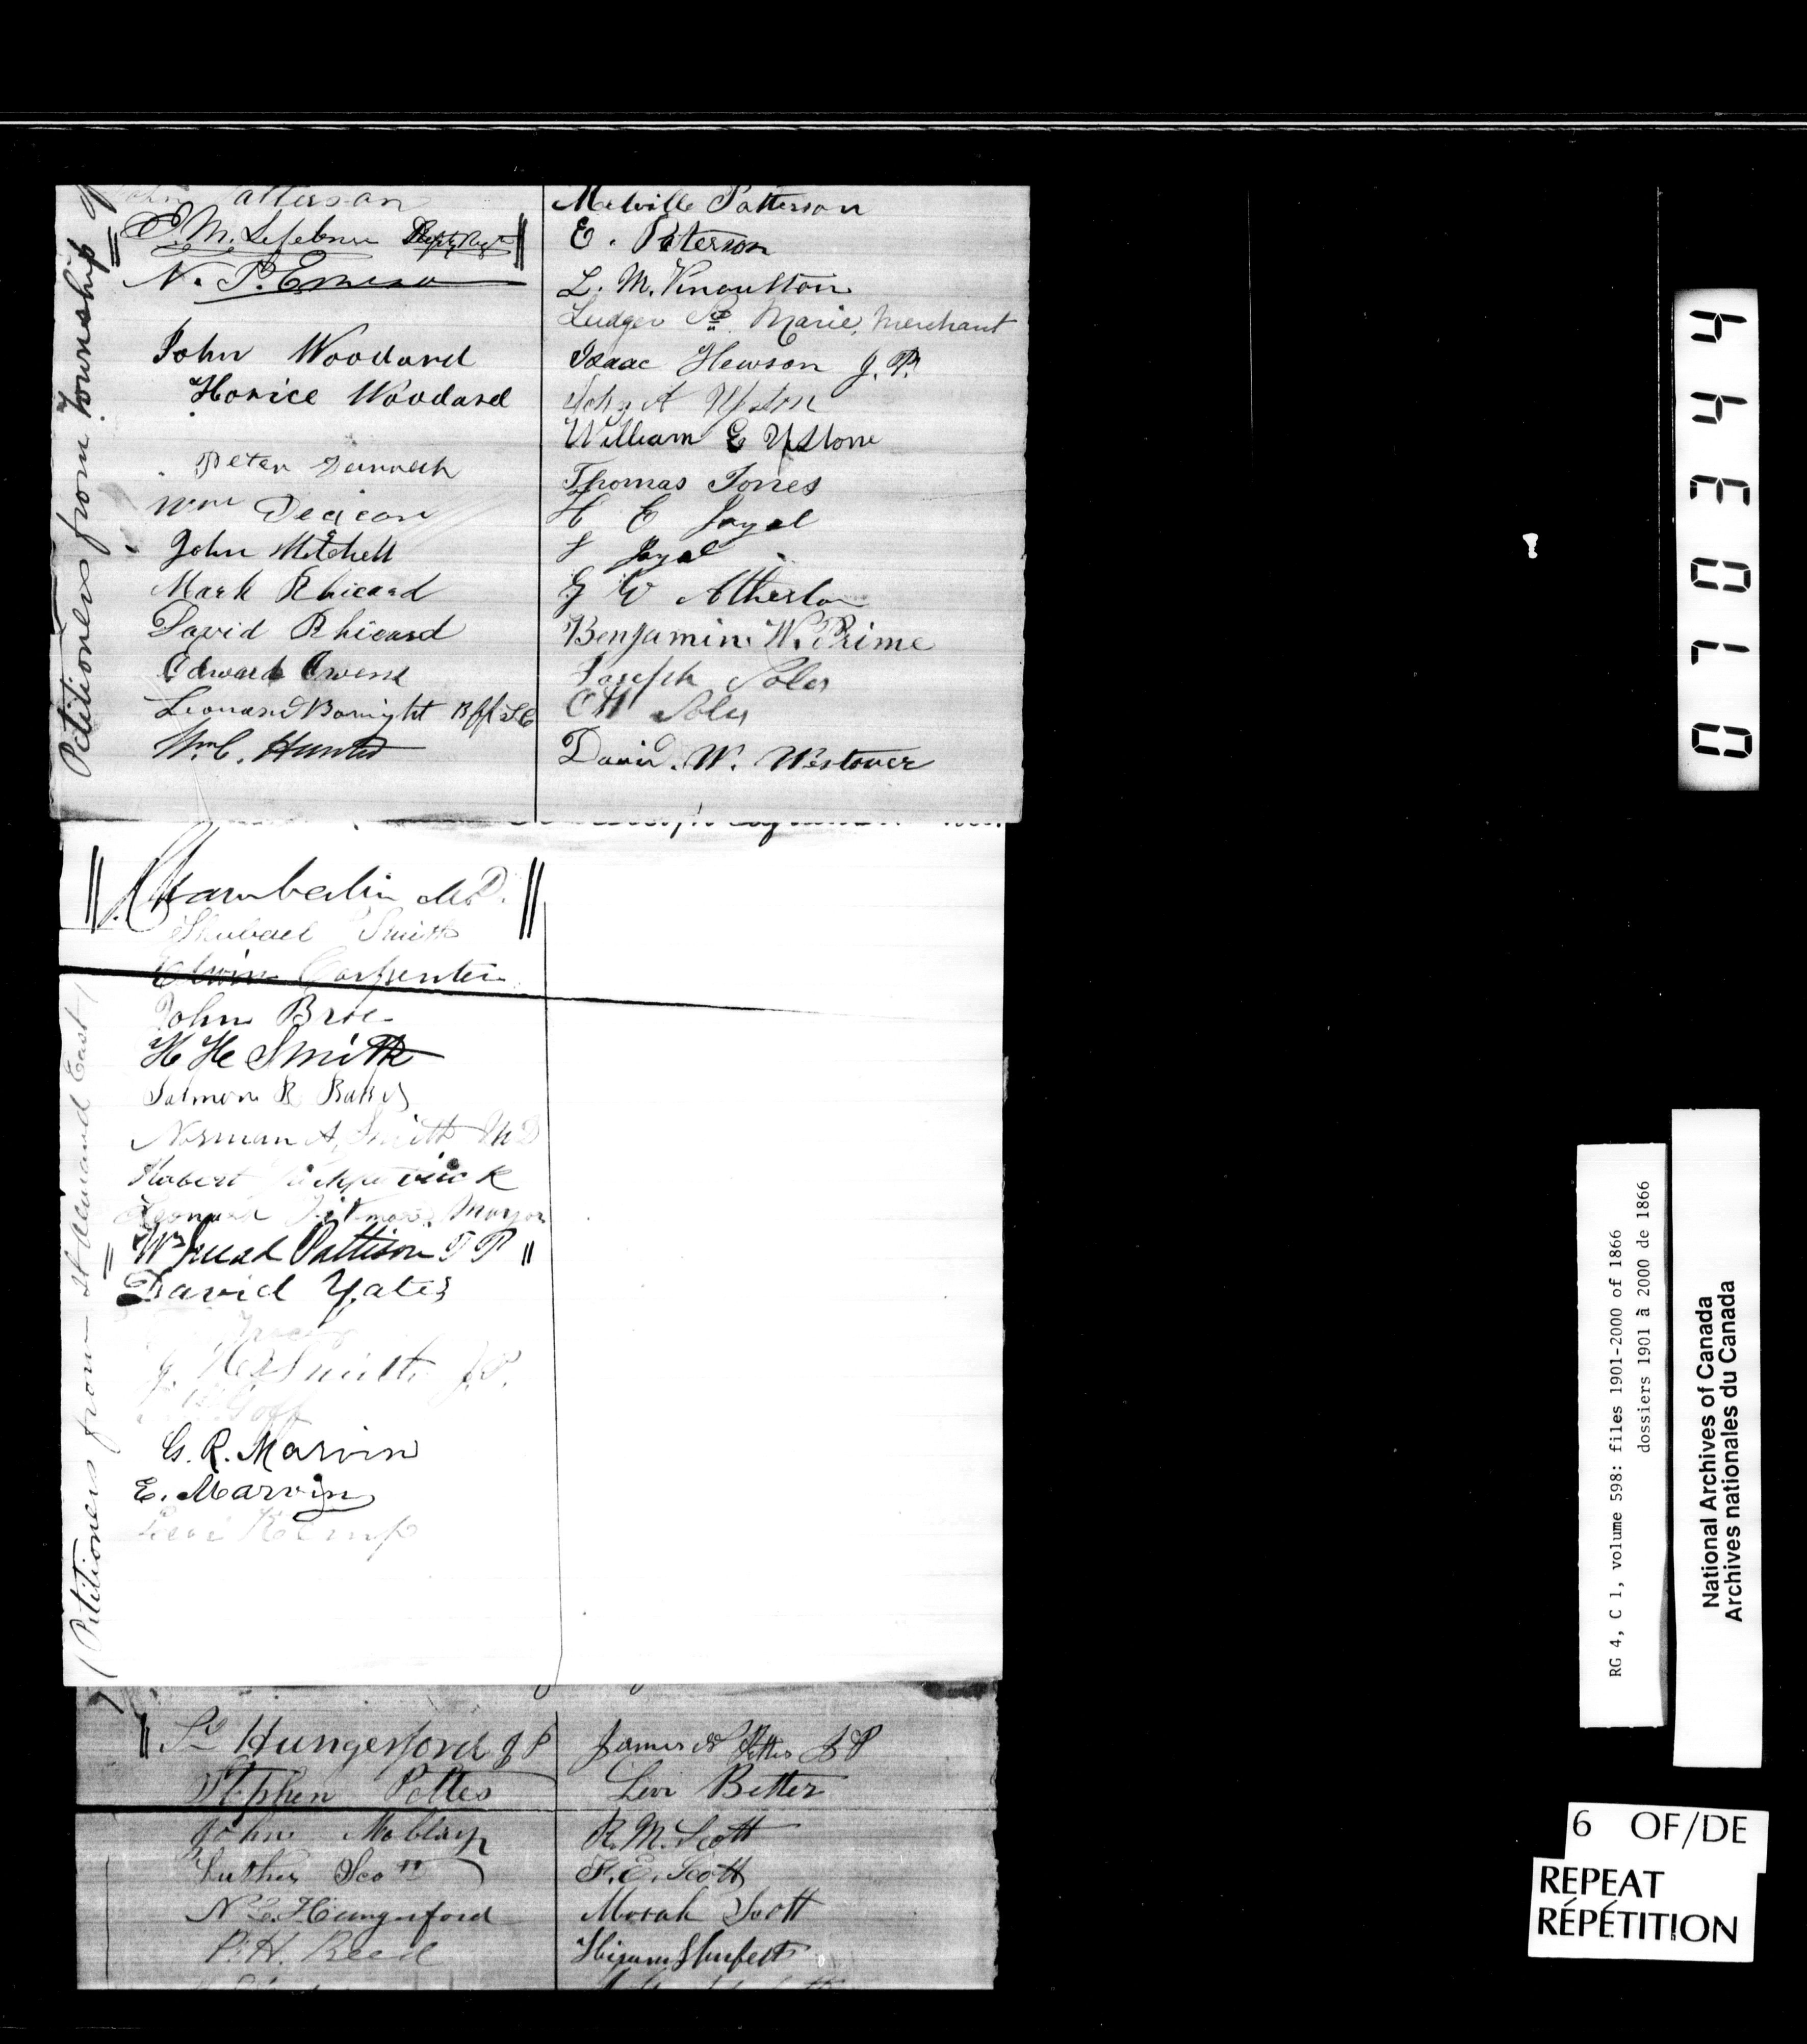 Petitioners from Township of
Patterson
N. P. Emerson
John Woodard
Horice Woodard
Peter
Wm Deacon
John Mitchell
Mark Rhicard
David Rhicard
Edward Owens
Leonard Boright
Wm C. Hunter
Melville Patterson
E. Paterson
L. M. Knowlton
Ludger Ste Marie, Merchant
Isaac Hewson J. P.
John A Upton
William E Upstone
Thomas Jones
H E Joyal
J Joyal
G W Atherton
Benjamin W. Prime
Joseph Soles
Soles
David. W. Westover
Petitioners from St Armand East
Chamberlin M.D.
Shubael Smith
Edwin Carpenter
John Broe
H H Smith
Salmon R Baker
Norman A. Smith MD
Robert
Leonard Mayor
Pattison
David Yates
Smith J.P.
Goff
G. R. Marvin
E. Marvin
Levi Kemp
Hungerford J P
Stephen Pettes
John
Luther Scott
Hungerford
P. H. Reed
James Pettes J P
Levi Better
R. M. Scott
F. E. Scott
Morah Scott
Hiram
0710344
RG 4, C 1, volume 598: files 1901-2000 of 1866
dossiers 1901 à 2000 de 1866
National Archives of Canada
Archives nationales du Canada
6 OF/DE
REPEAT
RÉPÉTITION